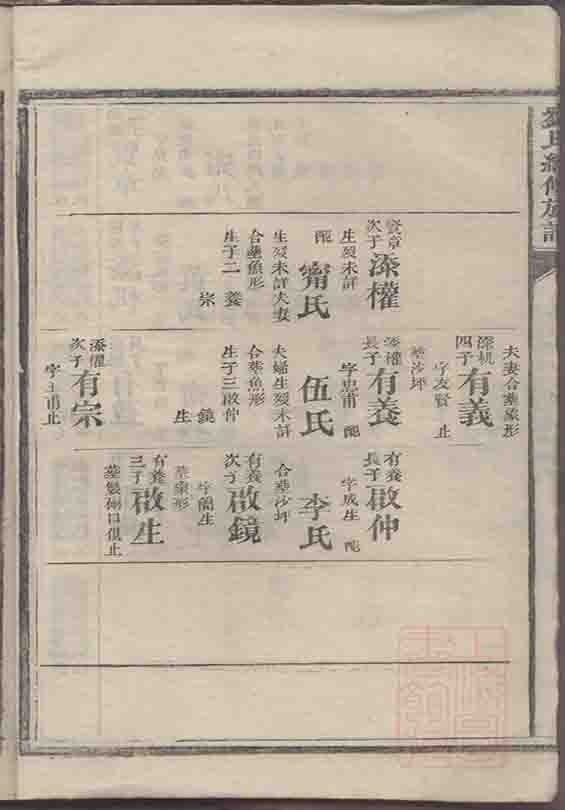 劉氏續修族譜
賢章
次子
添權
生歿未詳
配
甯氏
生歿未詳夫妻
合葬魚形
生子二 養
宗
夫妻合葬象形
四子
有義
字友賢 止
葬沙坪
添權
長子
有養
字忠甫 配
伍氏
夫婦生歿未詳
合葬魚形
生子三啟仲
鏡
生
添權
次子
有宗
字玉甫止
有養
長子
啟仲
字成生 配
李氏
合葬沙坪
有養
次子
啟鏡
字蘭生
葬象形
有養
三子
啟生